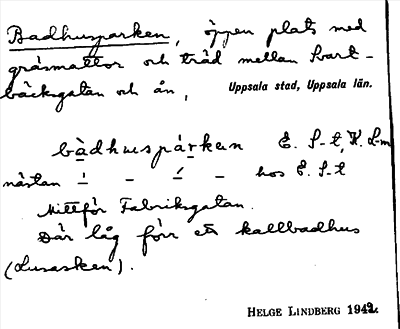 Badhusparken, öppen plats med
gräsmattor och träd mellan Svart-
bäcksgatan och ån, Uppsala stad, Uppsala län.
bàdhuspárken E. S-t, K. L-m
nästan ̱́ – ̱́ – hos E. S-t
Mittför Fabriksgatan.
Där låg förr ett kallbadhus
(Lusasken).
HELGE LINDBERG 1942.